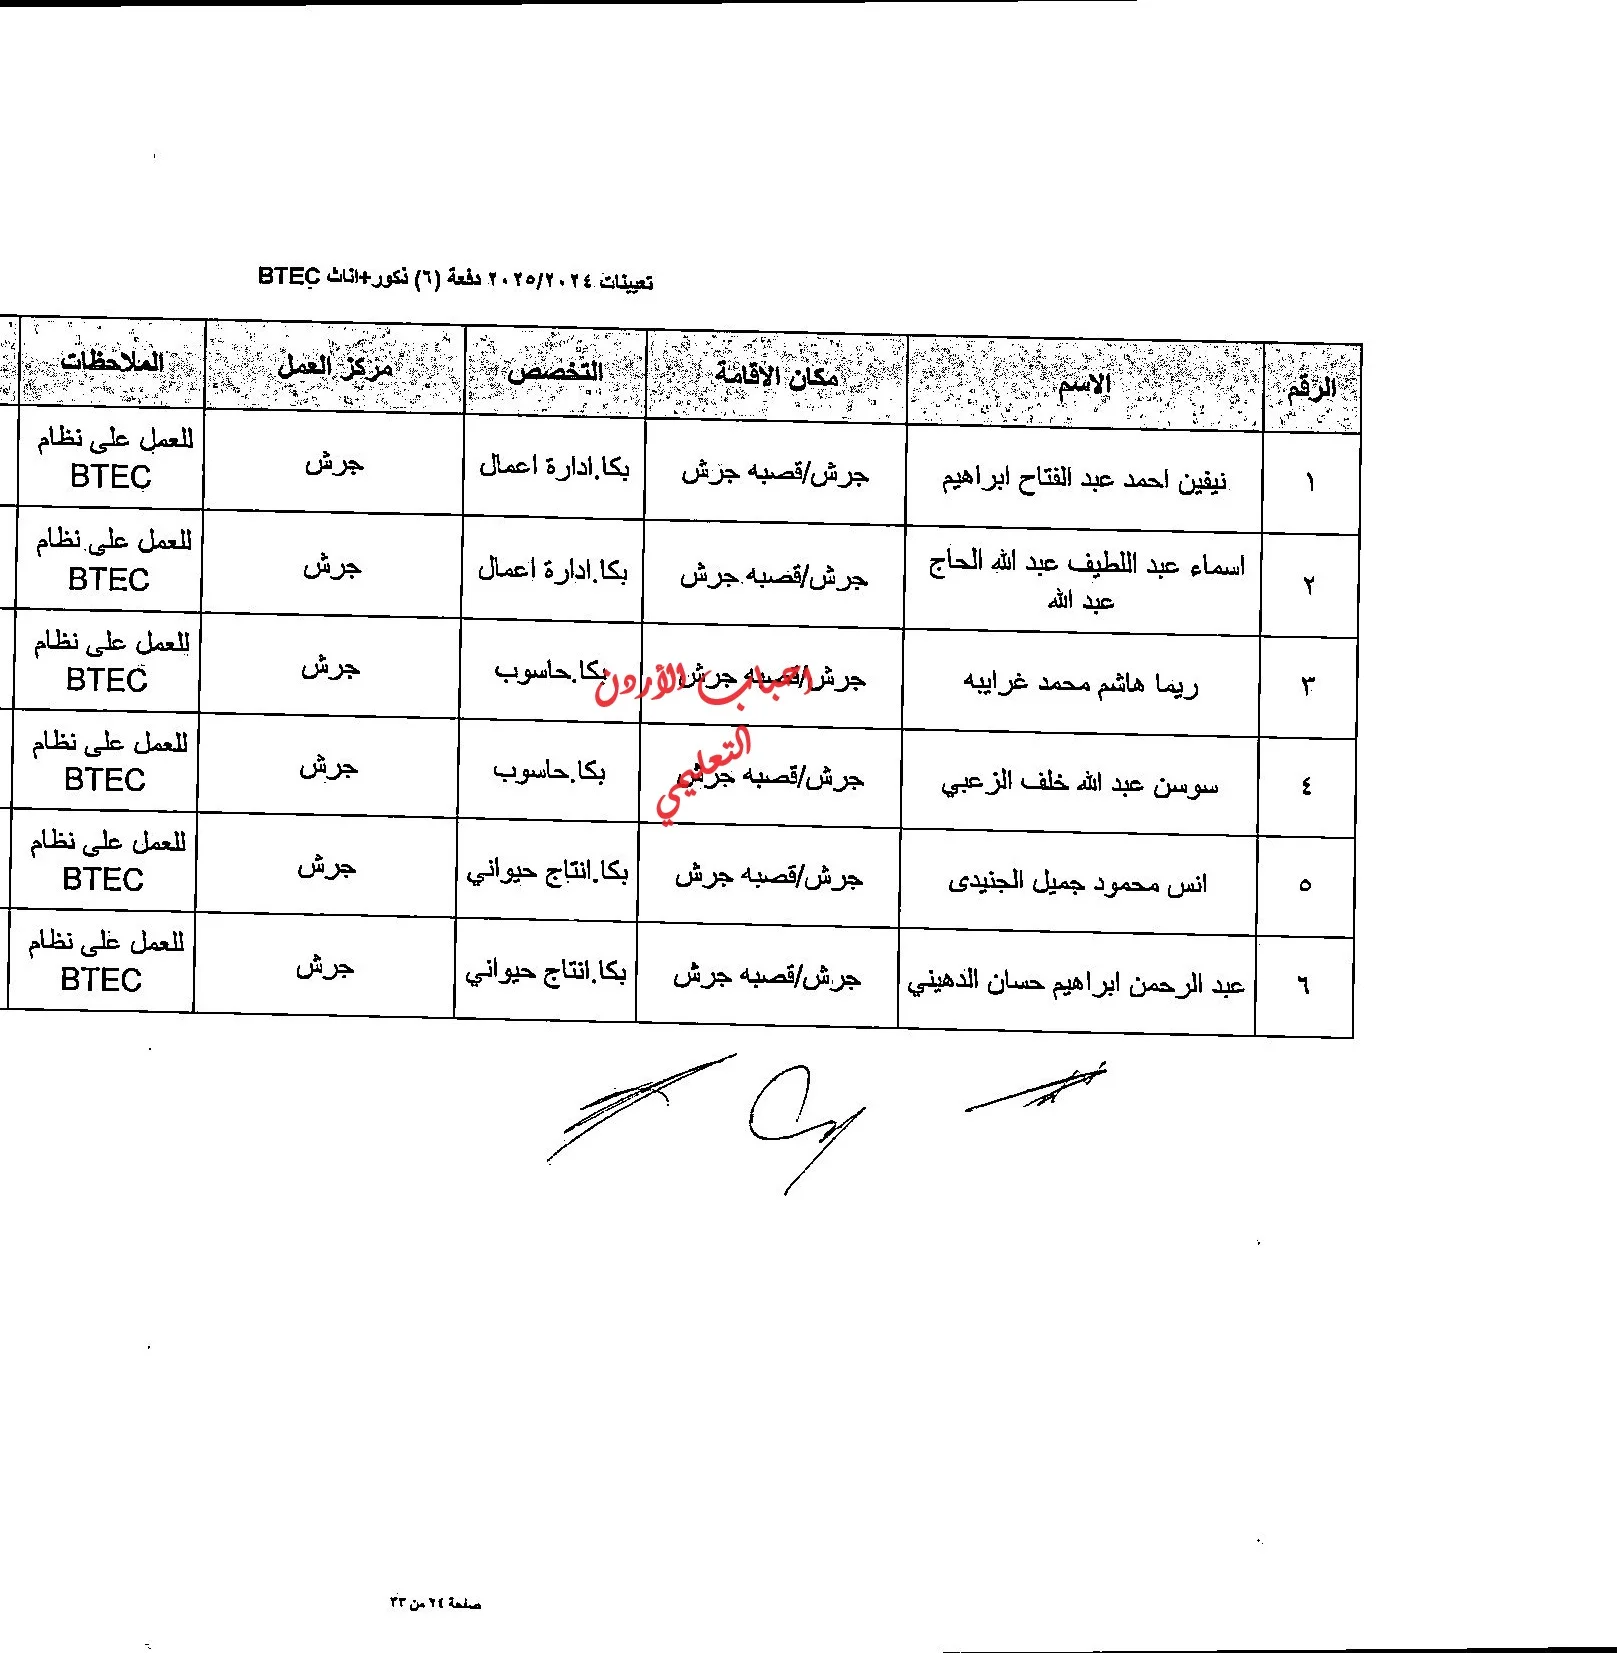 تعيينات ٢٠٢٥/٢٠٢٤ دفعة (٦) ذكور+اناث BTEC
الرقم الاسم مكان الاقامة التخصص مركز العمل الملاحظات
١ نيفين احمد عبد الفتاح ابراهيم جرش/قصبه جرش بكا.ادارة اعمال جرش للعمل على نظام BTEC
٢ اسماء عبد اللطيف عبد الله الحاج عبد الله جرش/قصبه جرش بكا.ادارة اعمال جرش للعمل على نظام BTEC
٣ ريما هاشم محمد غرايبه جرش/قصبه جرش بكا.حاسوب جرش للعمل على نظام BTEC
احباب الأردن
التعليمي
٤ سوسن عبد الله خلف الزعبي جرش/قصبه جرش بكا.حاسوب جرش للعمل على نظام BTEC
٥ انس محمود جميل الجنيدى جرش/قصبه جرش بكا.انتاج حيواني جرش للعمل على نظام BTEC
٦ عبد الرحمن ابراهيم حسان الدهيني جرش/قصبه جرش بكا.انتاج حيواني جرش للعمل على نظام BTEC
صفحة ٢٤ من ٣٣